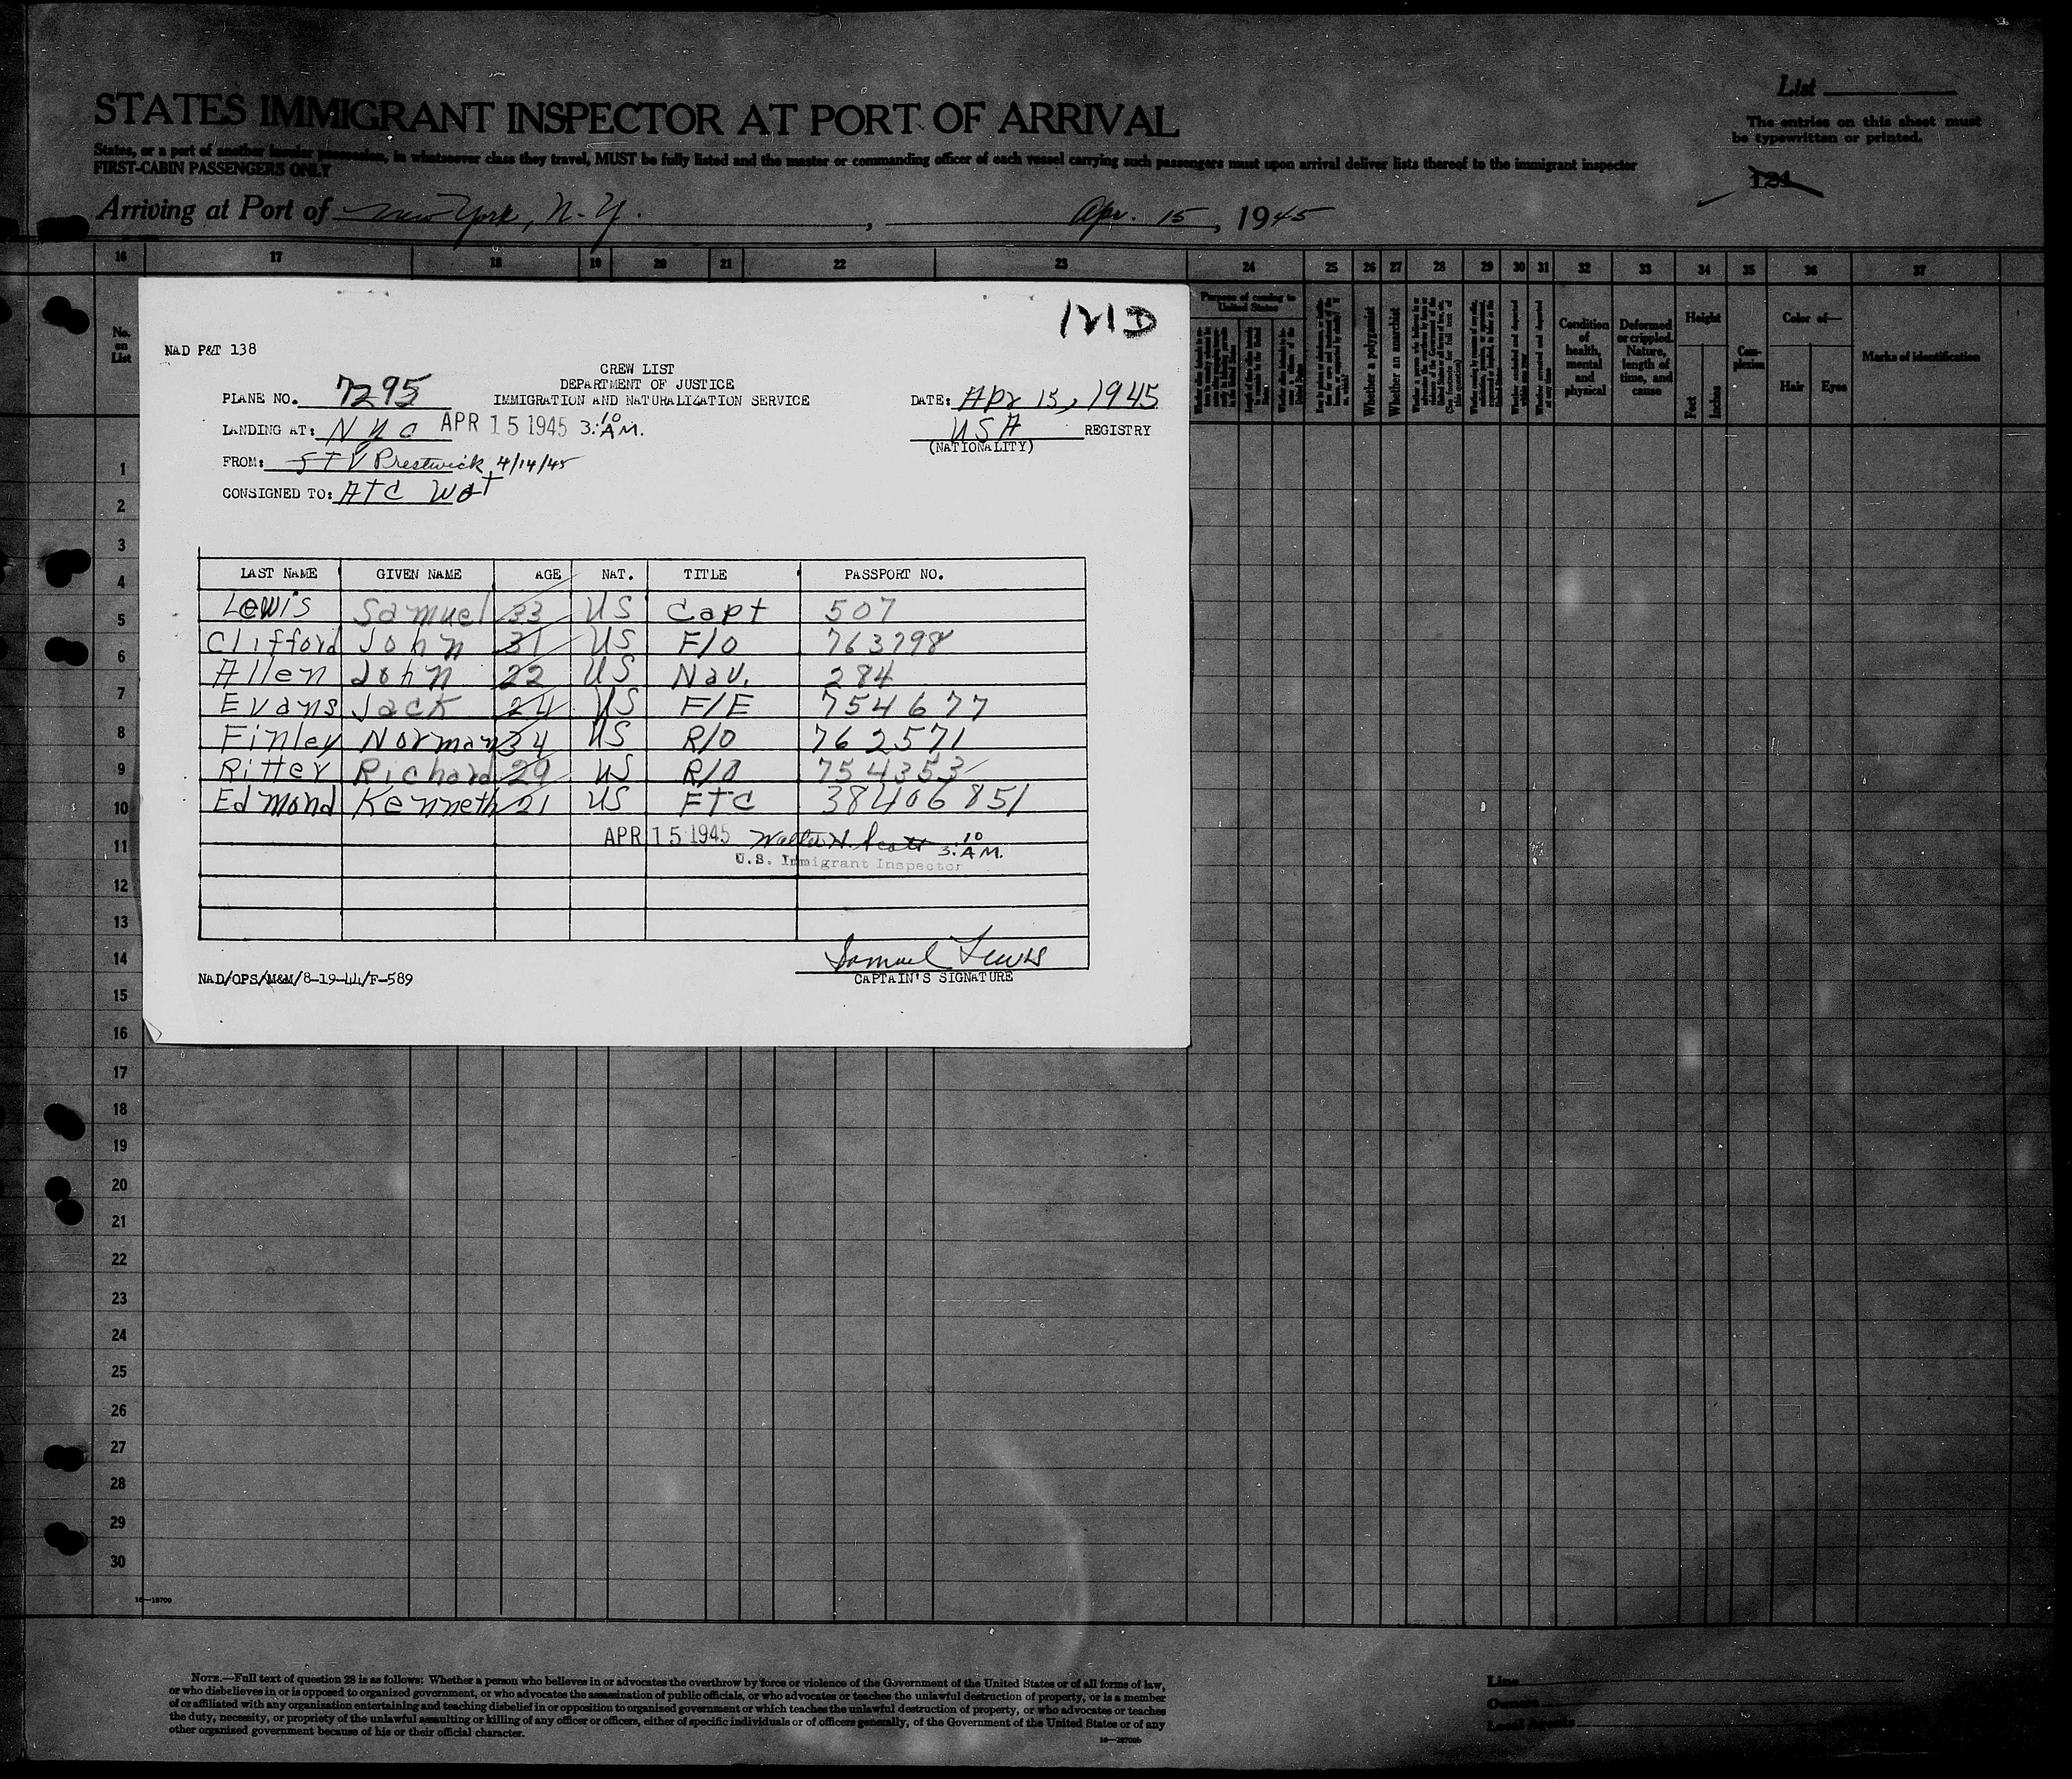 STATES IMMIGRANT INSPECTOR AT PORT OF ARRIVAL
List
The entries on this sheet must
be typewritten or printed.
States, or a port of another insular possession, in whatsoever class they travel, MUST be fully listed and the master or commanding officer of each vessel carrying such passengers must upon arrival deliver lists thereof to the immigrant inspector
FIRST-CABIN PASSENGERS ONLY
121
Arriving at Port of New York, N.Y. , Apr. 15, 1945
16 17 18 19 20 21 22 23 24 25 26 27 28 29 30 31 32 33 34 35 36 37
No. on List
Purpose of coming to United States
Whether a polygamist
Whether an anarchist
Condition of health, mental and physical
Deformed or crippled. Nature, length of time, and cause
Height
Feet
Inches
Complexion
Color of—
Hair
Eyes
Marks of identification
121D
NAD P&T 138
CREW LIST
DEPARTMENT OF JUSTICE
IMMIGRATION AND NATURALIZATION SERVICE
PLANE NO. 7295
DATE: Apr 15, 1945
LANDING AT: NYC APR 15 1945 3:10 A.M.
USA REGISTRY
(NATIONALITY)
FROM: STV Prestwick 4/14/45
CONSIGNED TO: ATC
LAST NAME GIVEN NAME AGE NAT. TITLE PASSPORT NO.
Lewis Samuel 33 US Capt 507
Clifford John 31 US F/O 763798
Allen John 22 US Nav. 284
Evans Jack 24 US F/E 754677
Finley Norman 34 US R/O 762571
Ritter Richard 29 US R/O 754353
Edmond Kenneth 21 US FTC 38406851
APR 15 1945 Walter H. Scott 3:10 A.M.
U.S. Immigrant Inspector
Samuel Lewis
CAPTAIN'S SIGNATURE
NAD/OPS/M&M/8-19-44/F-589
1
2
3
4
5
6
7
8
9
10
11
12
13
14
15
16
17
18
19
20
21
22
23
24
25
26
27
28
29
30
16—18709
NOTE.—Full text of question 28 is as follows: Whether a person who believes in or advocates the overthrow by force or violence of the Government of the United States or of all forms of law,
or who disbelieves in or is opposed to organized government, or who advocates the assassination of public officials, or who advocates or teaches the unlawful destruction of property, or is a member
of or affiliated with any organization entertaining and teaching disbelief in or opposition to organized government or which teaches the unlawful destruction of property, or who advocates or teaches
the duty, necessity, or propriety of the unlawful assaulting or killing of any officer or officers, either of specific individuals or of officers generally, of the Government of the United States or of any
other organized government because of his or their official character.
16—18709b
Line
Owners
Local Agents